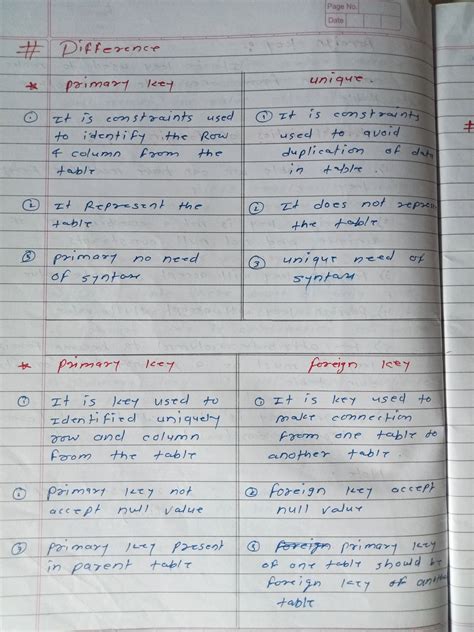 Page No.
Date
# Difference
* primary key
① It is constraints used
to identify the Row
& column from the
table
② It Represent the
table
③ primary no need
of syntax
unique.
① It is constraints
used to avoid
duplication of data
in table.
② It does not repres
the table
③ unique need of
syntax
* primary key
① It is key used to
Identified uniquely
row and column
from the table
② primary key not
accept null value
③ primary key present
in parent table
foreign key
① It is key used to
make connection
from one table to
another table.
② foreign key accept
null value
③ foreign primary key
of one table should be
foreign key of anoth
table